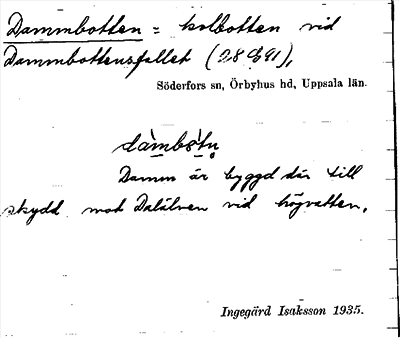 Dammbotten = kolbotten vid
Dammbottensfallet (28 G 91),
Söderfors sn, Örbyhus hd, Uppsala län.
dàmbòtn̥
Damm är byggd där till
skydd mot Dalälven vid högvatten.
Ingegärd Isaksson 1935.